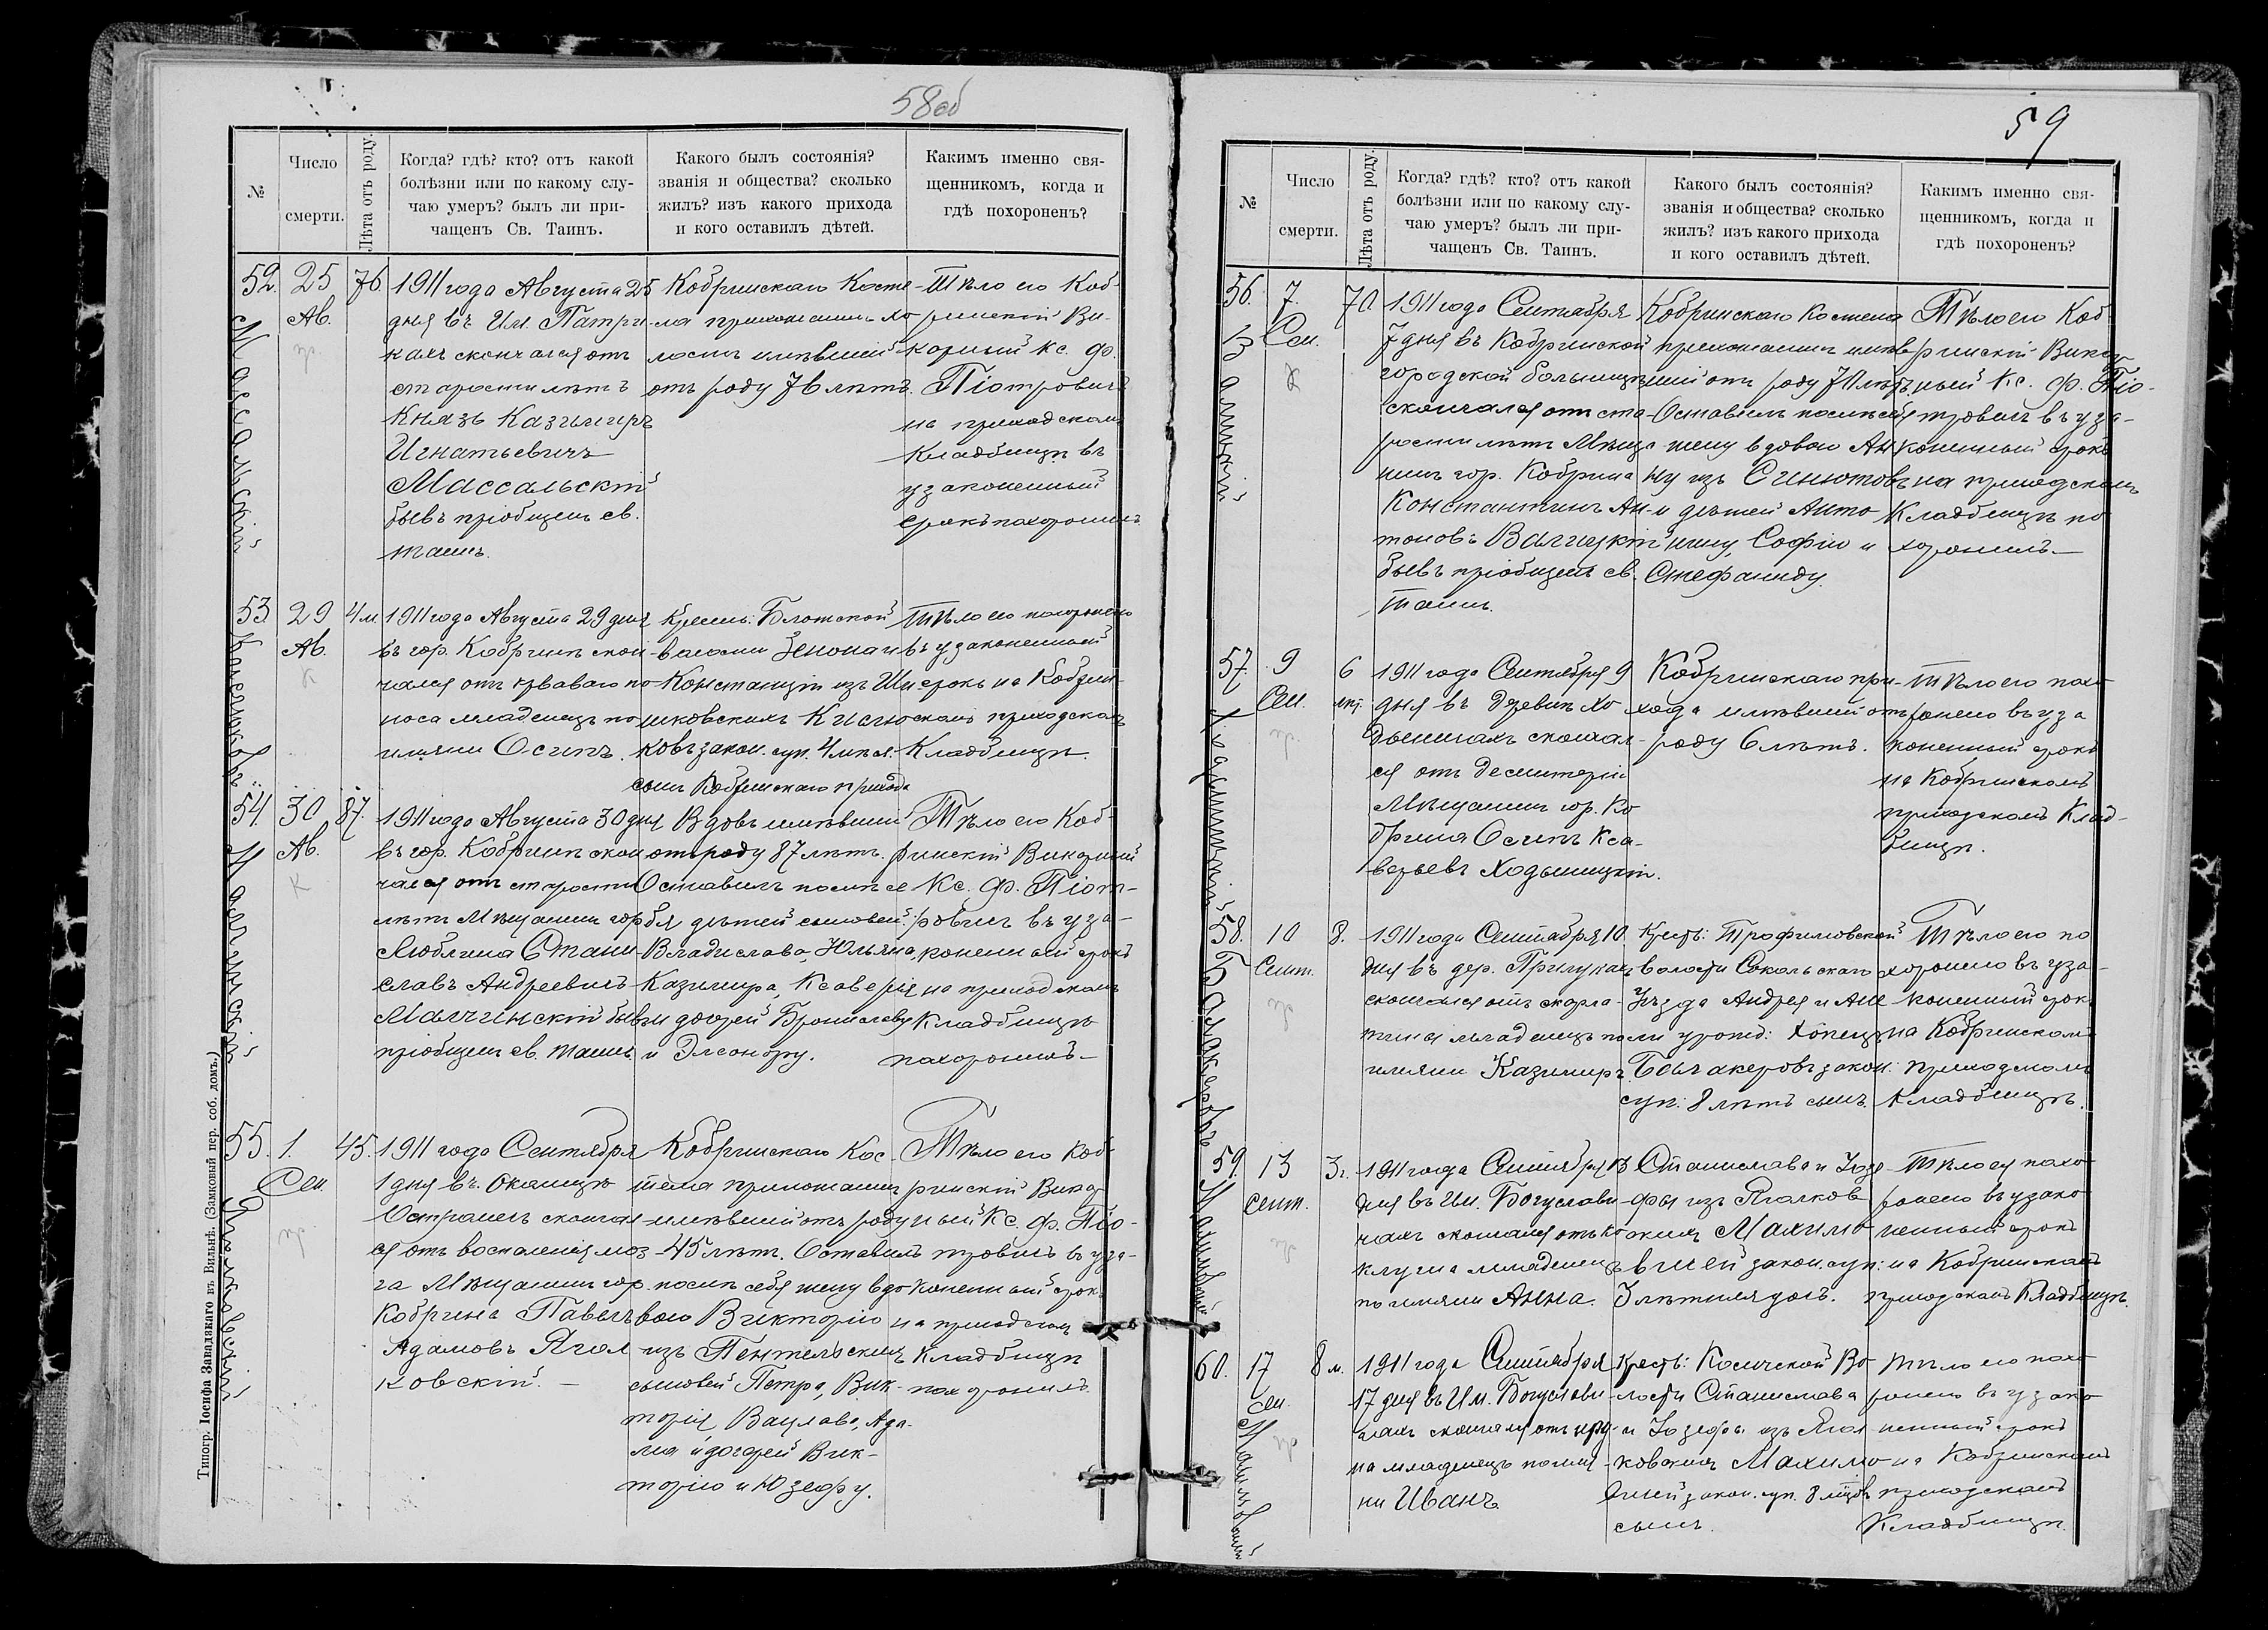 58об
№
Число
смерти.
Лѣта отъ роду.
Когда? гдѣ? кто? отъ какой
болѣзни или по какому слу-
чаю умеръ? былъ ли при-
чащенъ Св. Таинъ.
Какого былъ состоянія?
званія и общества? сколько
жилъ? изъ какого прихода
и кого оставилъ дѣтей.
Какимъ именно свя-
щенникомъ, когда и
гдѣ похороненъ?
52.
25
Ав.
76
Массальскій
1911 года Августа 25
дня въ Им. Патри-
кахъ скончался отъ
старости лѣтъ
Князь Казиміръ
Игнатьевичъ
Массальскій
бывъ пріобщенъ св.
таинъ.
Кобринскаго Косте-
ла прихожанинъ хо
лостъ имѣвшій
отъ роду 76 лѣтъ.
Тѣло его Коб-
ринскій Ви-
карный Кс. Ф.
Піотровичъ
на приходскомъ
Кладбищѣ въ
узаконенный
срокъ похоронилъ
53
29
Ав.
4 м
1911 года Августа 29 дня
въ гор. Кобринѣ скон-
чался отъ кроваваго по-
носа младенецъ по
имяни Осипъ.
Крест: Блотской
волости Зенона и
Констанціи изъ
ковъ закон. суп. 4 мѣс.
сынъ Кобринскаго прихода
Тѣло его похоронено
въ узаконенный
срокъ на Кобрин-
скомъ приходскомъ
Кладбищѣ.
54.
30
Ав.
К
87.
Малчинскій
1911 года Августа 30 дня
въ гор. Кобринѣ скон
чался отъ старости
лѣтъ Мѣщанинъ гор
Люблина Стани-
славъ Андреевичъ
Малчинскій бывъ
пріобщенъ св. таинъ.
Вдовъ имѣвшій
отъ роду 87 лѣтъ.
Оставилъ послѣ се
бя дѣтей сыновей:
Владислава, Юльяна,
Казиміра, Ксаверія
и дочерей Брониславу
и Элеонору.
Тѣло его Коб-
ринскій Викарный
Кс. Ф. Піот-
ровичъ въ уза-
коненный срокъ
на приходскомъ
Кладбищѣ
похоронилъ
55.
1.
Сен.
45.
Яголковскій
1911 года Сентября
1 дня въ. Околицѣ
скончал-
ся отъ воспаленія моз-
га Мѣщанинъ гор.
Кобрина Павелъ
Адамовъ Ягол
ковскій.
Кобринскаго Кос-
тела прихожанинъ
имѣвшій отъ роду
45 лѣтъ. Оставилъ
послѣ себя жену вдо
вою Викторію
изъ Пентельскихъ
сыновей Петра, Вик-
торія, Вацлава, Ада-
ма и дочерей Вик-
торію и Юзефу.
Тѣло его Коб-
ринскій Викар
ный Кс. Ф. Піо-
тровичъ въ уза-
коненный срокъ
на приходскомъ
Кладбищѣ
похоронилъ.
Типогр. Іосифа Завадзкаго въ Вильнѣ. (Замковый пер. соб. домъ.)
59
№
Число
смерти.
Лѣта отъ роду.
Когда? гдѣ? кто? отъ какой
болѣзни или по какому слу-
чаю умеръ? былъ ли при-
чащенъ Св. Таинъ.
Какого былъ состоянія?
званія и общества? сколько
жилъ? изъ какого прихода
и кого оставилъ дѣтей.
Какимъ именно свя-
щенникомъ, когда и
гдѣ похороненъ?
56.
7.
Сен.
К
70.
1911 года Сентября
7 дня въ Кобринской
городской больницѣ
скончался отъ ста-
рости лѣтъ Мѣща
нинъ гор. Кобрина
Константинъ Ан-
тоновъ
бывъ пріобщенъ св.
Таинъ.
Кобринскаго Костела
прихожанинъ имѣв
шій отъ роду 70 лѣтъ,
Оставилъ послѣ себя
жену вдовою Ан
ну изъ Синютовъ
и дѣтей Анто
нину, Софію и
Стефаниду.
Тѣло его Коб
ринскій Викар
ный Кс. Ф. Піо-
тровичъ въ уза-
коненный срокъ
на приходскомъ
Кладбищѣ по
хоронилъ.
57.
9
Сен.
6
лѣт.
Ходыницкій
1911 года Сентября 9
дня въ деревнѣ Хо
дыничахъ скончал-
ся отъ десинтеріи
Мѣщанинъ гор. Ко
брина Осипъ Кса-
верьевъ Ходыницкій.
Кобринскаго при-
хода имѣвшій отъ
роду 6 лѣтъ.
Тѣло его похо
ронено въ уза
коненный срокъ
на Кобринскомъ
приходскомъ Клад-
бищѣ.
58.
10
Сент.
8.
1911 года Сентября 10
дня въ дер. Прилукахъ
скончался отъ скарла-
тины младенецъ по
имяни Казиміръ.
Крест: Трофимовской
волости Сокольскаго
Уѣзда Андрея и
закон:
суп: 8 лѣтъ сынъ.
Тѣло его по
хоронено въ уза-
коненный срокъ
на Кобринскомъ
приходскомъ
Кладбищѣ.
59.
13
Сент.
3 г.
1911 года Сентября 13
дня въ Им. Богуслави-
чахъ скончался отъ ко
клуша младенецъ
по имяни Анна.
Станислава и Юзе-
фы изъ Яголков
скихъ Махимо
закон. суп:
3 лѣтняя дочь.
Тѣло ея похо
ронено въ узако
ненный срокъ
на Кобринскомъ
приходскомъ Кладбищѣ.
60.
17
Сен.
8 м.
1911 года Сентября
17 дня въ Им. Богуслави-
чахъ скончался отъ
младенецъ по имя-
ни Иванъ
Крест: Во
лости Станислава
и Юзефы изъ Ягол
ковскихъ Махимо
закон. суп. 8 мѣсяц.
сынъ.
Тѣло его похо
ронено въ узако
ненный срокъ
на Кобринскомъ
приходскомъ
Кладбищѣ.